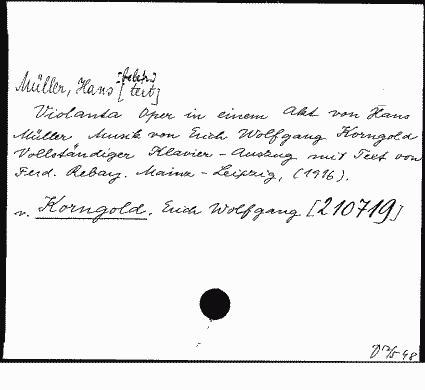 Müller, Hans [text]
Violanta Oper in einem Akt von Hans
Müller Musik von Erich Wolfgang Korngold
Vollständiger Klavier-Auszug mit Text von
Ferd. Rebay. Mainz-Leipzig, (1916).
v. Korngold. Erich Wolfgang [210719]